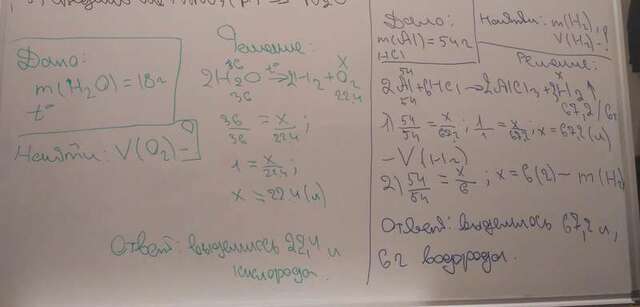 Дано:
m(H₂O)=18г
t°
Найти: V(O₂)-
Решение:
36 x
2H₂O t° → 2H₂+O₂
36 22.4
36/36 = x/22.4;
1 = x/22.4;
x = 22.4(л)
Ответ: выделилось 22,4 л
кислорода.
Дано:
m(Al)=54г
HCl
Найти: m(H₂),
V(H₂)-?
Решение:
54 x
2Al+6HCl→2AlCl₃+3H₂↑
54 67,2/6г
1) 54/54 = x/67,2; 1/1 = x/67,2; x=67,2(л)
-V(H₂)
2) 54/54 = x/6; x=6(г)-m(H₂)
Ответ: выделилось 67,2 л,
6г водорода.